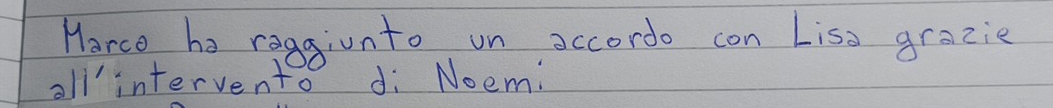 Marco ha raggiunto un accordo con Lisa grazie
all'intervento di Noemi